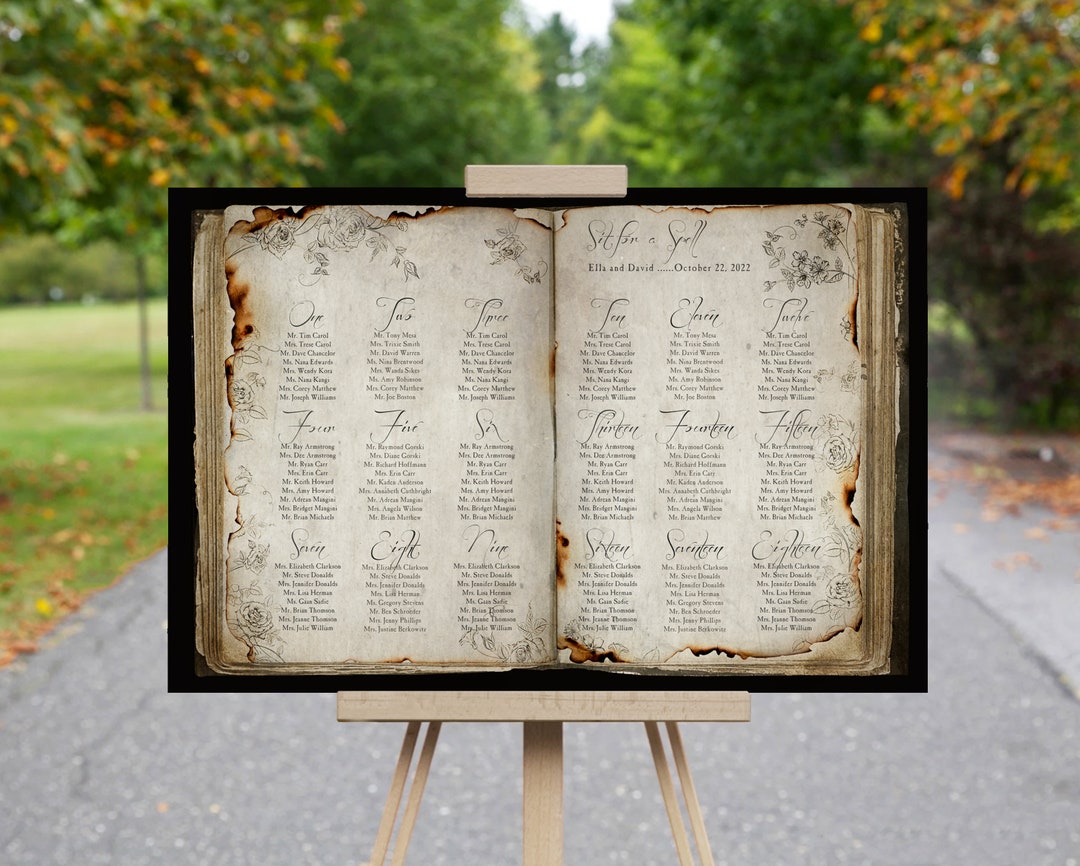 One
Mr. Tim Carol
Mrs. Trese Carol
Mr. Dave Chancelor
Ms. Nana Edwards
Mrs. Wendy Kora
Ms. Nana Kangi
Mrs. Corey Matthew
Mr. Joseph Williams
Two
Mr. Tony Mesa
Mrs. Trixie Smith
Mr. David Warren
Ms. Nina Brentwood
Mrs. Wanda Sikes
Ms. Amy Robinson
Mrs. Corey Matthew
Mr. Joe Boston
Three
Mr. Tim Carol
Mrs. Trese Carol
Mr. Dave Chancelor
Ms. Nana Edwards
Mrs. Wendy Kora
Ms. Nana Kangi
Mrs. Corey Matthew
Mr. Joseph Williams
Four
Mr. Ray Armstrong
Mrs. Dee Armstrong
Mr. Ryan Carr
Mrs. Erin Carr
Mr. Keith Howard
Mrs. Amy Howard
Mr. Adrean Mangini
Mrs. Bridget Mangini
Mr. Brian Michaels
Five
Mr. Raymond Gorski
Mrs. Diane Gorski
Mr. Richard Hoffmann
Mrs. Erin Carr
Mr. Kaden Anderson
Mrs. Annabeth Cuthbright
Mr. Adrean Mangini
Mrs. Angela Wilson
Mr. Brian Matthew
Six
Mr. Ray Armstrong
Mrs. Dee Armstrong
Mr. Ryan Carr
Mrs. Erin Carr
Mr. Keith Howard
Mrs. Amy Howard
Mr. Adrean Mangini
Mrs. Bridget Mangini
Mr. Brian Michaels
Seven
Mrs. Elizabeth Clarkson
Mr. Steve Donalds
Mrs. Jennifer Donalds
Mrs. Lisa Herman
Ms. Gian Sadie
Mr. Brian Thomson
Mrs. Jeanne Thomson
Mrs. Julie William
Eight
Mrs. Elizabeth Clarkson
Mr. Steve Donalds
Mrs. Jennifer Donalds
Mrs. Lisa Herman
Ms. Gregory Stevens
Mr. Ben Schroefer
Mrs. Jenny Phillips
Mrs. Justine Berkowitz
Nine
Mrs. Elizabeth Clarkson
Mr. Steve Donalds
Mrs. Jennifer Donalds
Mrs. Lisa Herman
Ms. Gian Sadie
Mr. Brian Thomson
Mrs. Jeanne Thomson
Mrs. Julie William
Sit for a Spell
Ella and David ......October 22, 2022
Ten
Mr. Tim Carol
Mrs. Trese Carol
Mr. Dave Chancelor
Ms. Nana Edwards
Mrs. Wendy Kora
Ms. Nana Kangi
Mrs. Corey Matthew
Mr. Joseph Williams
Eleven
Mr. Tony Mesa
Mrs. Trixie Smith
Mr. David Warren
Ms. Nina Brentwood
Mrs. Wanda Sikes
Ms. Amy Robinson
Mrs. Corey Matthew
Mr. Joe Boston
Twelve
Mr. Tim Carol
Mrs. Trese Carol
Mr. Dave Chancelor
Ms. Nana Edwards
Mrs. Wendy Kora
Ms. Nana Kangi
Mrs. Corey Matthew
Mr. Joseph Williams
Thirteen
Mr. Ray Armstrong
Mrs. Dee Armstrong
Mr. Ryan Carr
Mrs. Erin Carr
Mr. Keith Howard
Mrs. Amy Howard
Mr. Adrean Mangini
Mrs. Bridget Mangini
Mr. Brian Michaels
Fourteen
Mr. Raymond Gorski
Mrs. Diane Gorski
Mr. Richard Hoffmann
Mrs. Erin Carr
Mr. Kaden Anderson
Mrs. Annabeth Cuthbright
Mr. Adrean Mangini
Mrs. Angela Wilson
Mr. Brian Matthew
Fifteen
Mr. Ray Armstrong
Mrs. Dee Armstrong
Mr. Ryan Carr
Mrs. Erin Carr
Mr. Keith Howard
Mrs. Amy Howard
Mr. Adrean Mangini
Mrs. Bridget Mangini
Mr. Brian Michaels
Sixteen
Mrs. Elizabeth Clarkson
Mr. Steve Donalds
Mrs. Jennifer Donalds
Mrs. Lisa Herman
Ms. Gian Sadie
Mr. Brian Thomson
Mrs. Jeanne Thomson
Mrs. Julie William
Seventeen
Mrs. Elizabeth Clarkson
Mr. Steve Donalds
Mrs. Jennifer Donalds
Mrs. Lisa Herman
Ms. Gregory Stevens
Mr. Ben Schroefer
Mrs. Jenny Phillips
Mrs. Justine Berkowitz
Eighteen
Mrs. Elizabeth Clarkson
Mr. Steve Donalds
Mrs. Jennifer Donalds
Mrs. Lisa Herman
Ms. Gian Sadie
Mr. Brian Thomson
Mrs. Jeanne Thomson
Mrs. Julie William